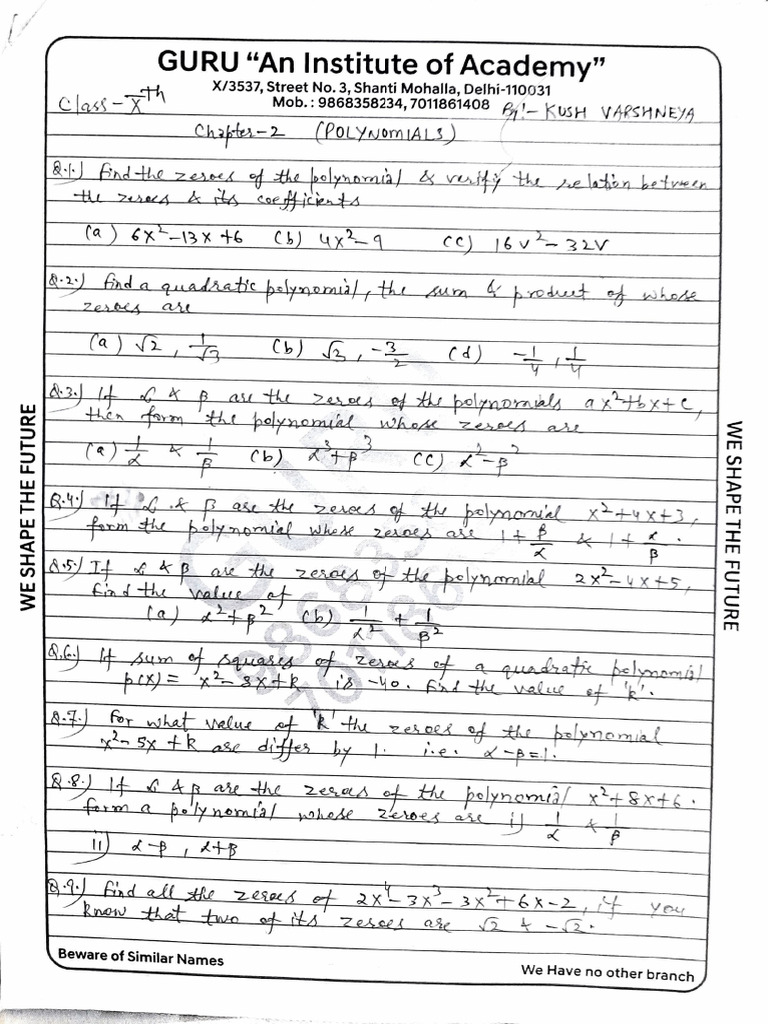 GURU "An Institute of Academy"
X/3537, Street No. 3, Shanti Mohalla, Delhi-110031
Mob. : 9868358234, 7011861408
Class - Xth
By:- KUSH VARSHNEYA
Chapter-2 (POLYNOMIALS)
Q.1.) Find the zeroes of the polynomial & verify the relation between
the zeroes & its coefficients
(a) 6x²-13x+6 (b) 4x²-9 (c) 16v²-32v
Q.2.) Find a quadratic polynomial, the sum & product of whose
zeroes are
(a) √2, 1/√3 (b) √3, -3/2 (d) -1/4, 1/4
Q.3.) If α & β are the zeroes of the polynomials ax²+bx+c,
then form the polynomial whose zeroes are
(a) 1/α & 1/β (b) α³+β³ (c) α²-β²
Q.4.) If α & β are the zeroes of the polynomial x²+4x+3,
form the polynomial whose zeroes are 1+β/α & 1+α/β.
Q.5.) If α & β are the zeroes of the polynomial 2x²-4x+5,
find the value of
(a) α²+β² (b) 1/α² + 1/β²
Q.6.) If sum of squares of zeroes of a quadratic polynomial
p(x) = x²-8x+k is -40. Find the value of 'k'.
Q.7.) For what value of 'k' the zeroes of the polynomial
x²-5x+k are differ by 1. i.e. α-β=1.
Q.8.) If α & β are the zeroes of the polynomial x²+8x+6.
form a polynomial whose zeroes are i) 1/α & 1/β
ii) α-β, α+β
Q.9.) Find all the zeroes of 2x⁴-3x³-3x²+6x-2, if you
know that two of its zeroes are √2 & -√2.
WE SHAPE THE FUTURE
WE SHAPE THE FUTURE
Beware of Similar Names
We Have no other branch